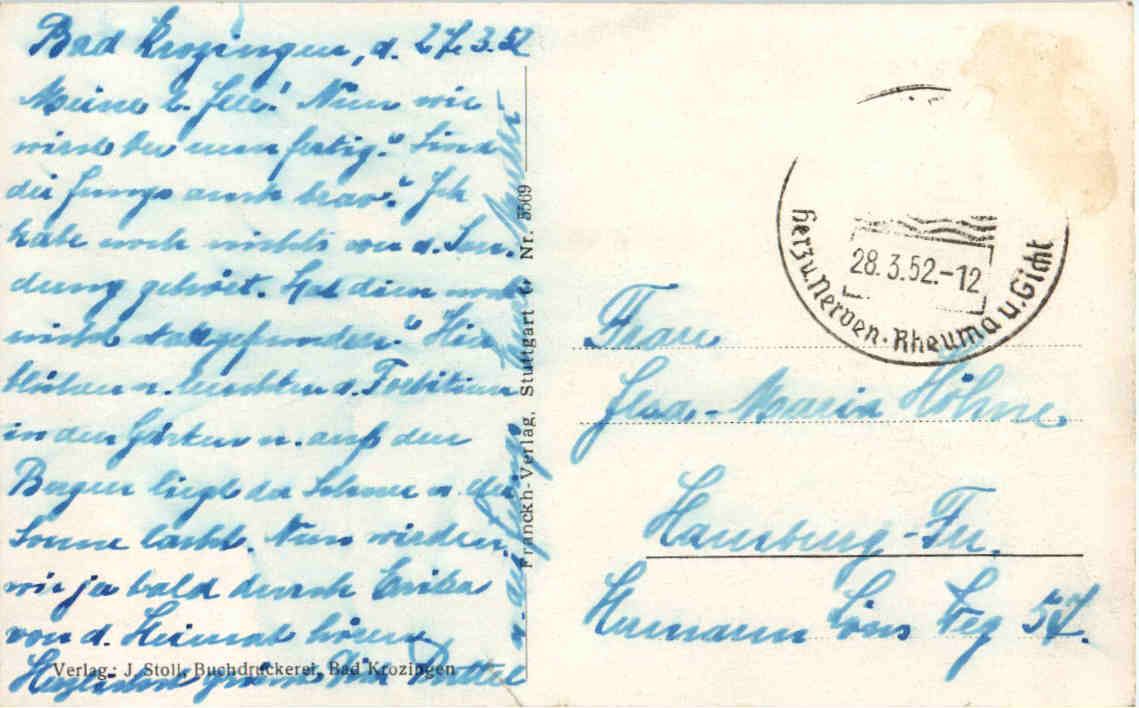 Bad Krozingen, d. 27.3.52
Meine l. Ille! Nun wie
wirst du nun fertig? Sind
die Jungs auch brav? Ich
habe noch nichts von d. Sen-
dung gehört. Hat denn noch
nicht stattgefunden? Hier
blühen u. leuchten d. Forsitien
in den Gärten u. auf den
Bergen liegt der Schnee u. die
Sonne lacht. Nun werden
wir ja bald durch Erika
von d. Heimat hören.
Herzlichst grüssen Dich
Verlag: J. Stoll, Buchdruckerei, Bad Krozingen
Franckh-Verlag, Stuttgart Nr. 5569
Herz u. Nerven · Rheuma u. Gicht
28.3.52.-12
Frau
Maria Höhne
Hamburg-Fu.
Hermann Löns Weg 57.